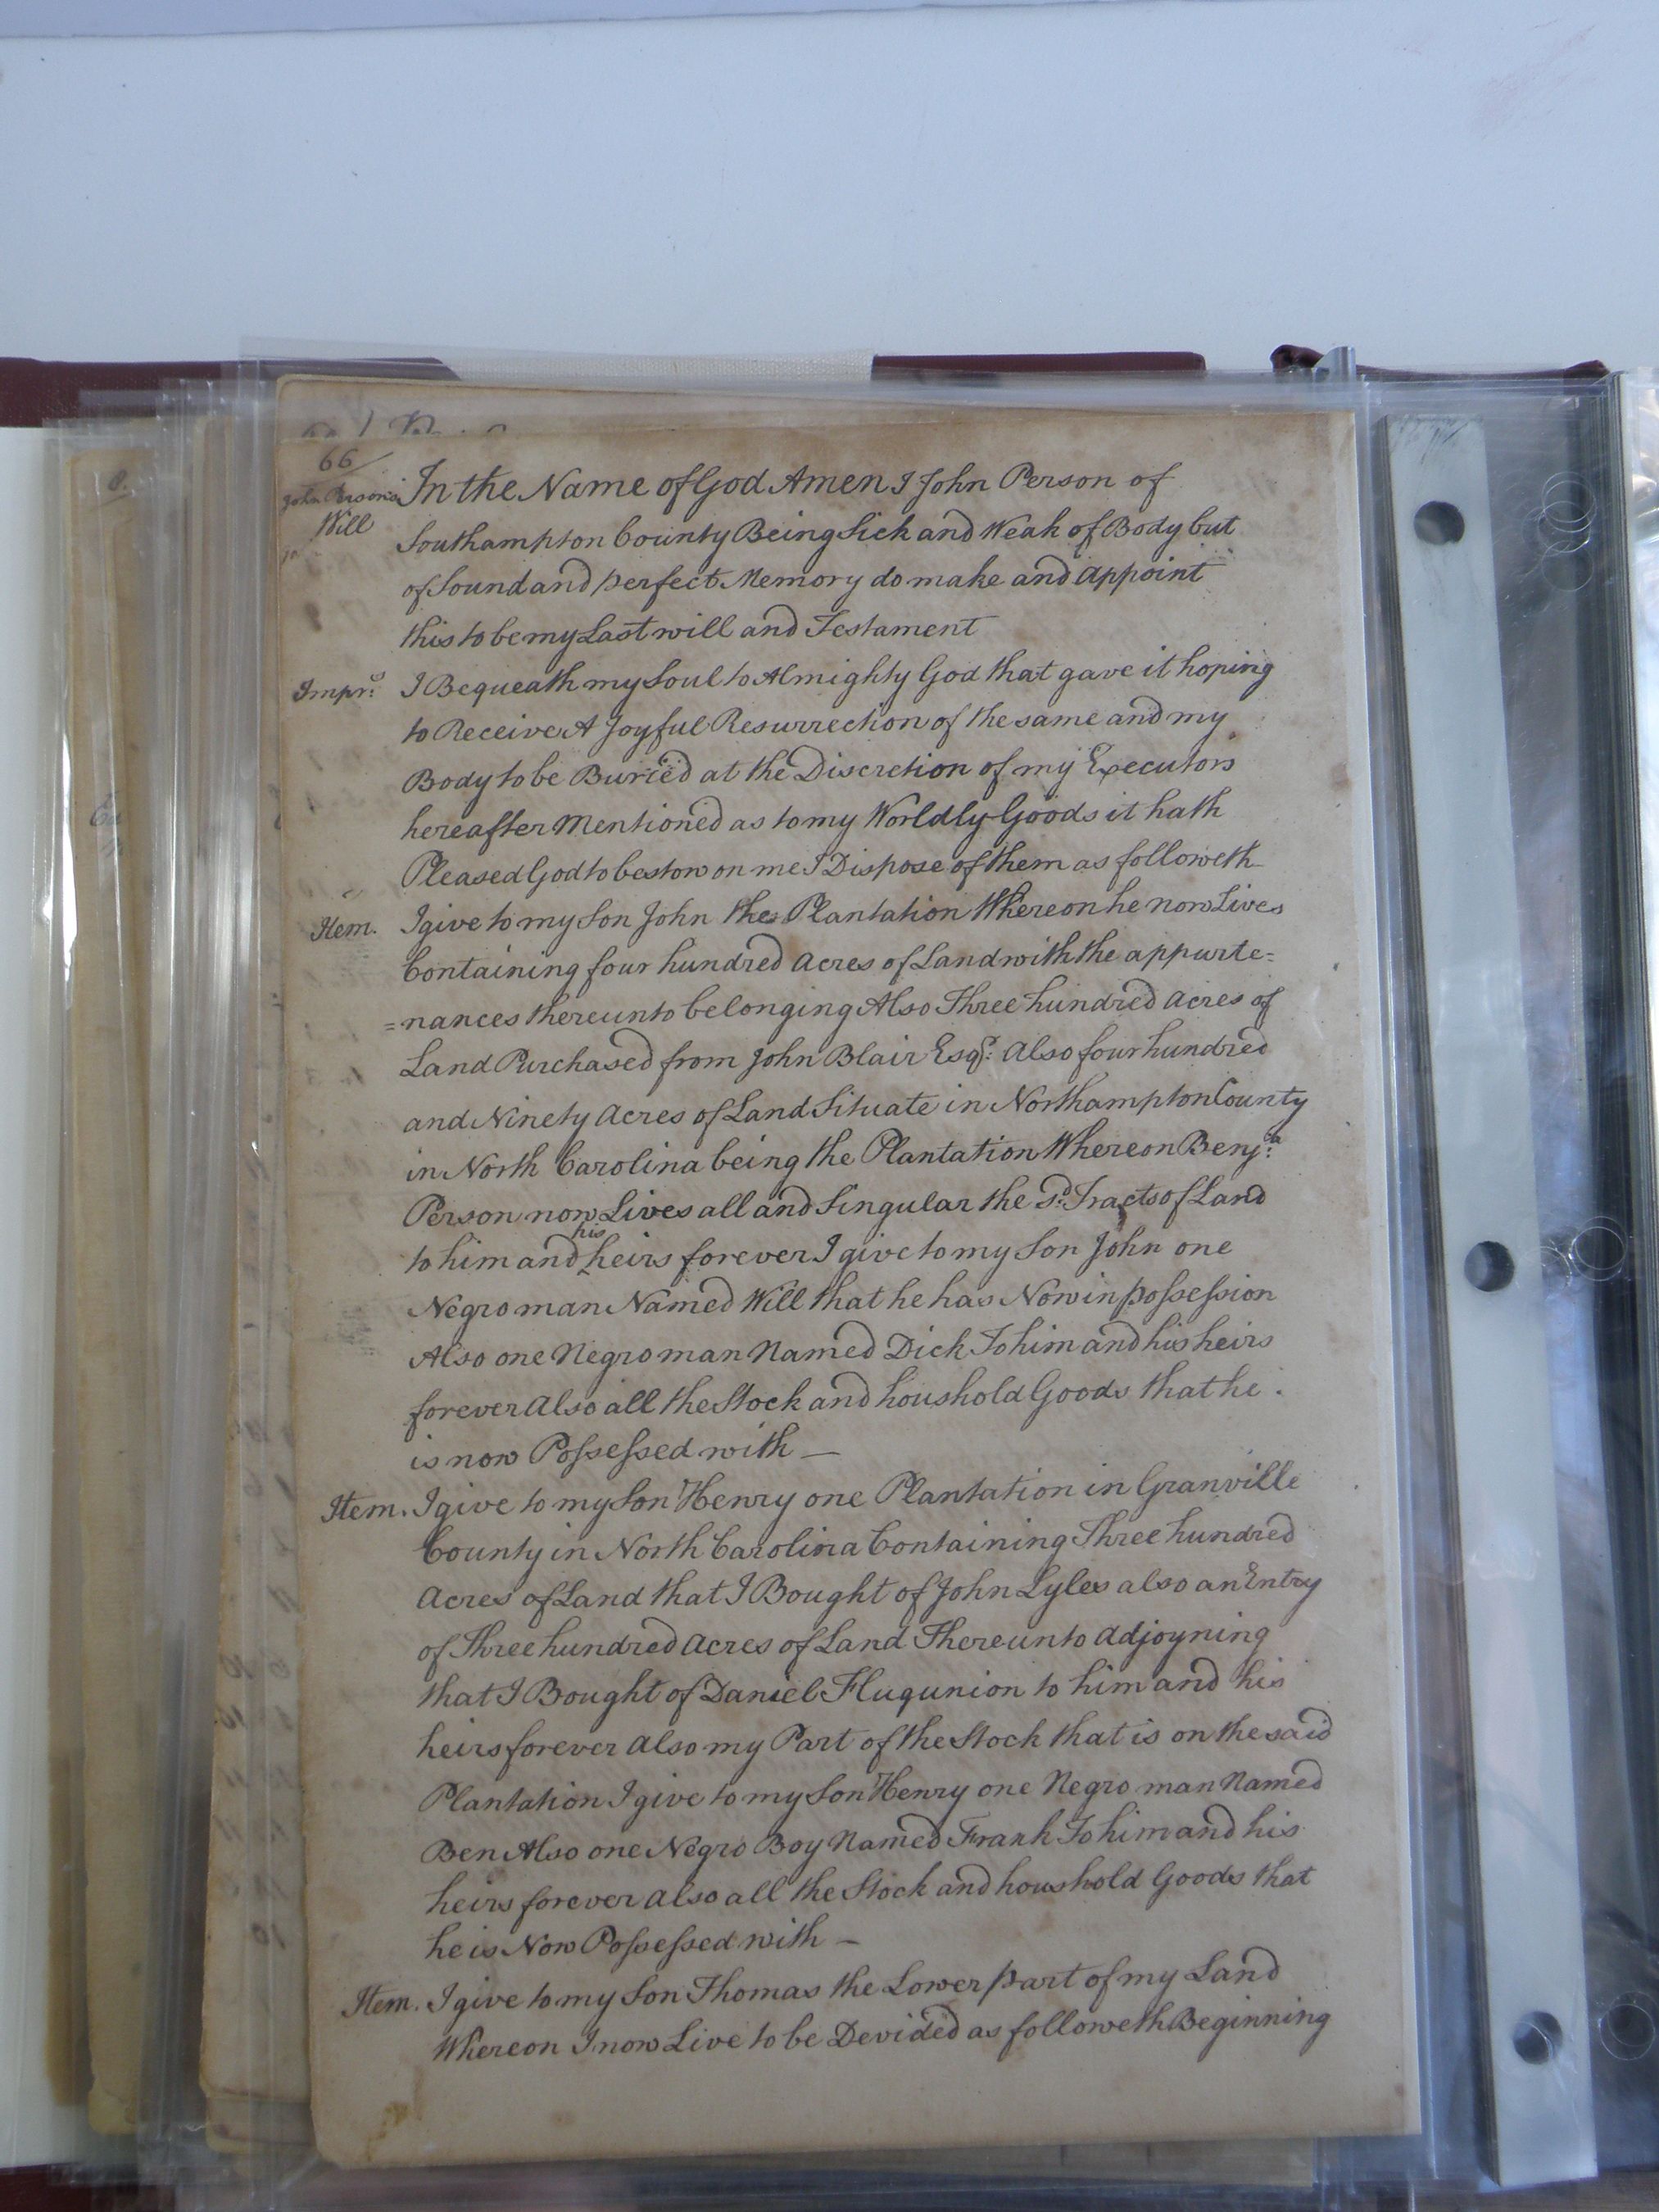 66
John Person's
Will
In the Name of God Amen I John Person of
Southampton County Being Sick and Weak of Body but
of Sound and perfect Memory do make and appoint
this to be my Last will and Testament
Impr.s I Bequeath my Soul to Almighty God that gave it hoping
to Receive A Joyful Resurrection of the same and my
Body to be Buried at the Discretion of my Executors
hereafter Mentioned as to my Worldly Goods it hath
Pleased God to bestow on me I Dispose of them as followeth
Item. I give to my Son John the Plantation Whereon he now Lives
Containing four hundred acres of Land with the appurte=
=nances thereunto belonging Also Three hundred acres of
Land Purchased from John Blair Esqr: also four hundred
and Ninety acres of Land Situate in Northampton County
in North Carolina being the Plantation Whereon Benja:
Person now Lives all and Singular the sd. Tracts of Land
to him and his heirs forever I give to my Son John one
Negro man Named Will that he has Now in possession
Also one Negro man Named Dick To him and his heirs
forever also all the Stock and houshold Goods that he
is now Possessed with —
Item. I give to my Son Henry one Plantation in Granville
County in North Carolina Containing Three hundred
acres of Land that I Bought of John Lyles also an Entry
of Three hundred acres of Land Thereunto adjoyning
that I Bought of Daniel Fluqunion to him and his
heirs forever also my Part of the Stock that is on the said
Plantation I give to my Son Henry one Negro man Named
Ben Also one Negro Boy Named Frank To him and his
heirs forever also all the Stock and houshold Goods that
he is Now Possessed with —
Item. I give to my Son Thomas the Lower part of my Land
Whereon I now Live to be Devided as followeth Beginning